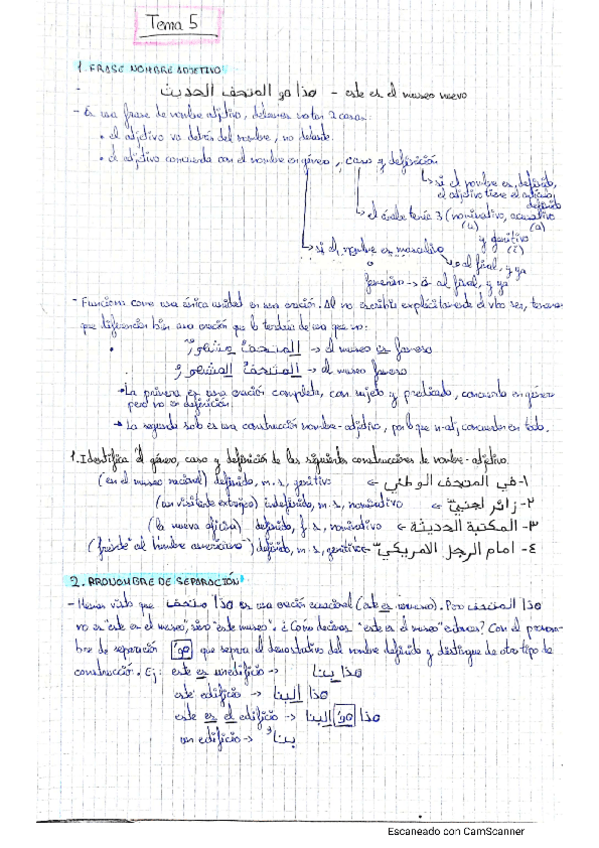 Tema 5
1. FRASE NOMBRE ADJETIVO
- هذا هو المتحف الحديث - este es el museo nuevo
- Es una frase de nombre adjetivo, debemos notar 2 cosas:
• el adjetivo va detrás del nombre, no delante.
• el adjetivo concuerda con el nombre en género, caso y definición
↳ si el nombre es definido,
el adjetivo tiene el artículo
definido
↳ el árabe tenía 3 (nominativo, acusativo
(u) (a)
y genitivo
(i)
↳ si el nombre es masculino
al final, y ya
femenino → ة al final, y ya
- Funciona como una única unidad en una oración. Al no escribirse explícitamente el vbo ser, tenemos
que diferenciar bien una oración que lo tendría de una que no:
• المتحفُ مشهورٌ → el museo es famoso
المتحفُ المشهورُ → el museo famoso
• La primera es una oración completa, con sujeto y predicado, concuerda en género
pero no en definición.
• La segunda solo es una construcción nombre-adjetivo, por lo que n-adj concuerdan en todo.
1. Identifica el género, caso y definición de las siguientes construcciones de nombre-adjetivo.
(en el museo nacional) definido, m.s, genitivo ← ١- في المتحف الوطني
(un visitante extranjero) indefinido, m.s, nominativo ← ٢- زائر اجنبيٌّ
(la nueva oficina) definido, f.s, nominativo ← ٣- المكتبة الحديثة
(frente "al hombre americano") definido, m.s, genitivo ← ٤- امام الرجل الامريكيّ
2. PRONOMBRE DE SEPARACIÓN
- Hemos visto que هذا متحف es una oración ecuacional (este es museo). Pero هذا المتحف
no es "este en el museo", sino "este museo". ¿Cómo decimos "este es el museo" entonces? Con el pronom-
bre de separación هو que separa el demostrativo del nombre definido y distingue de otro tipo de
construcción. Ej: este es un edificio → هذا بنا
este edificio → هذا البنا
este es el edificio → هذا هو البنا
un edificio → بنا
Escaneado con CamScanner